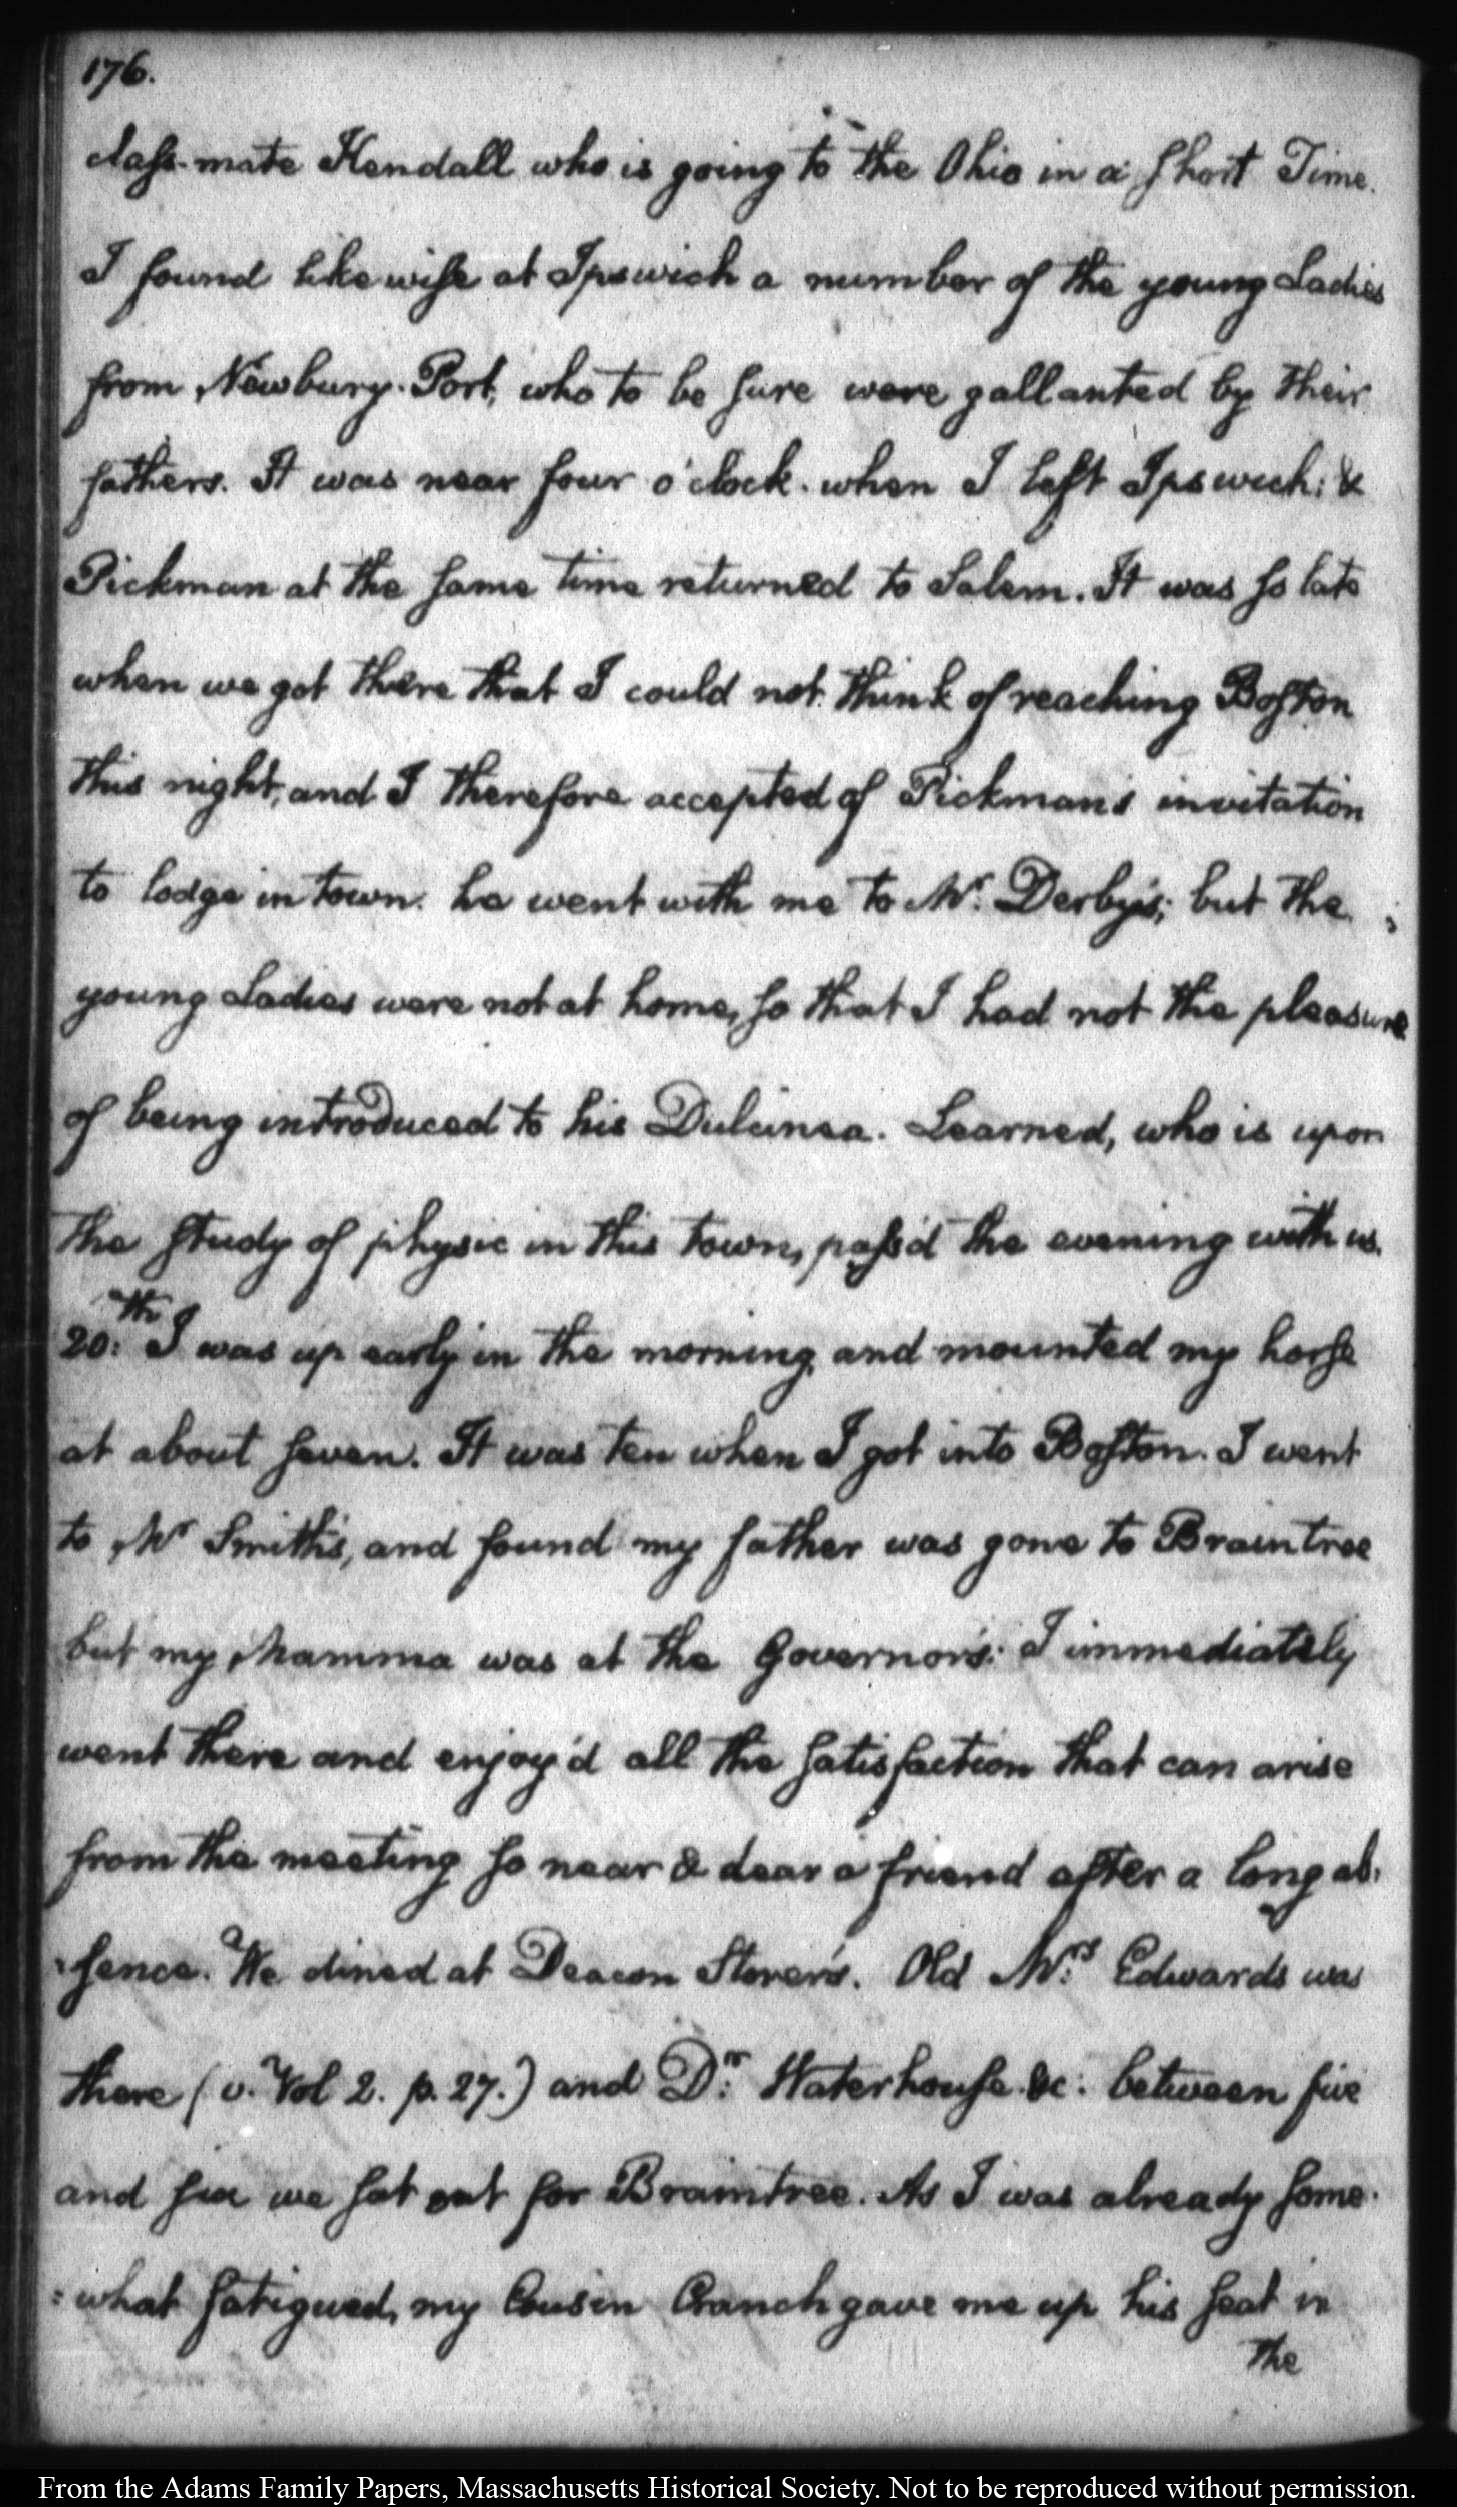 176.
class-mate Kendall who is going to the Ohio in a short Time.
I found likewise at Ipswich a number of the young Ladies
from Newbury-Port, who to be sure were gallanted by their
fathers. It was near four o'clock when I left Ipswich; &
Pickman at the same time returned to Salem. It was so late
when we got there that I could not think of reaching Boston
this night, and I therefore accepted of Pickman's invitation
to lodge in town. he went with me to Mr. Derby's; but the
young Ladies were not at home, so that I had not the pleasure
of being introduced to his Dulcinea. Learned, who is upon
the study of physic in this town, pass'd the evening with us.
20:th I was up early in the morning, and mounted my horse
at about seven. It was ten when I got into Boston. I went
to Mr Smith's, and found my father was gone to Braintree
but my Mamma was at the Governor's: I immediately
went there and enjoy'd all the satisfaction that can arise
from the meeting so near & dear a friend after a long ab-
-sence. We dined at Deacon Storer's. Old Mrs. Edwards was
there (v. Vol 2. p. 27.) and Dr. Waterhouse &c. between five
and six we sat out for Braintree. As I was already some-
=what fatigued, my Cousin Cranch gave me up his seat in
the
From the Adams Family Papers, Massachusetts Historical Society. Not to be reproduced without permission.